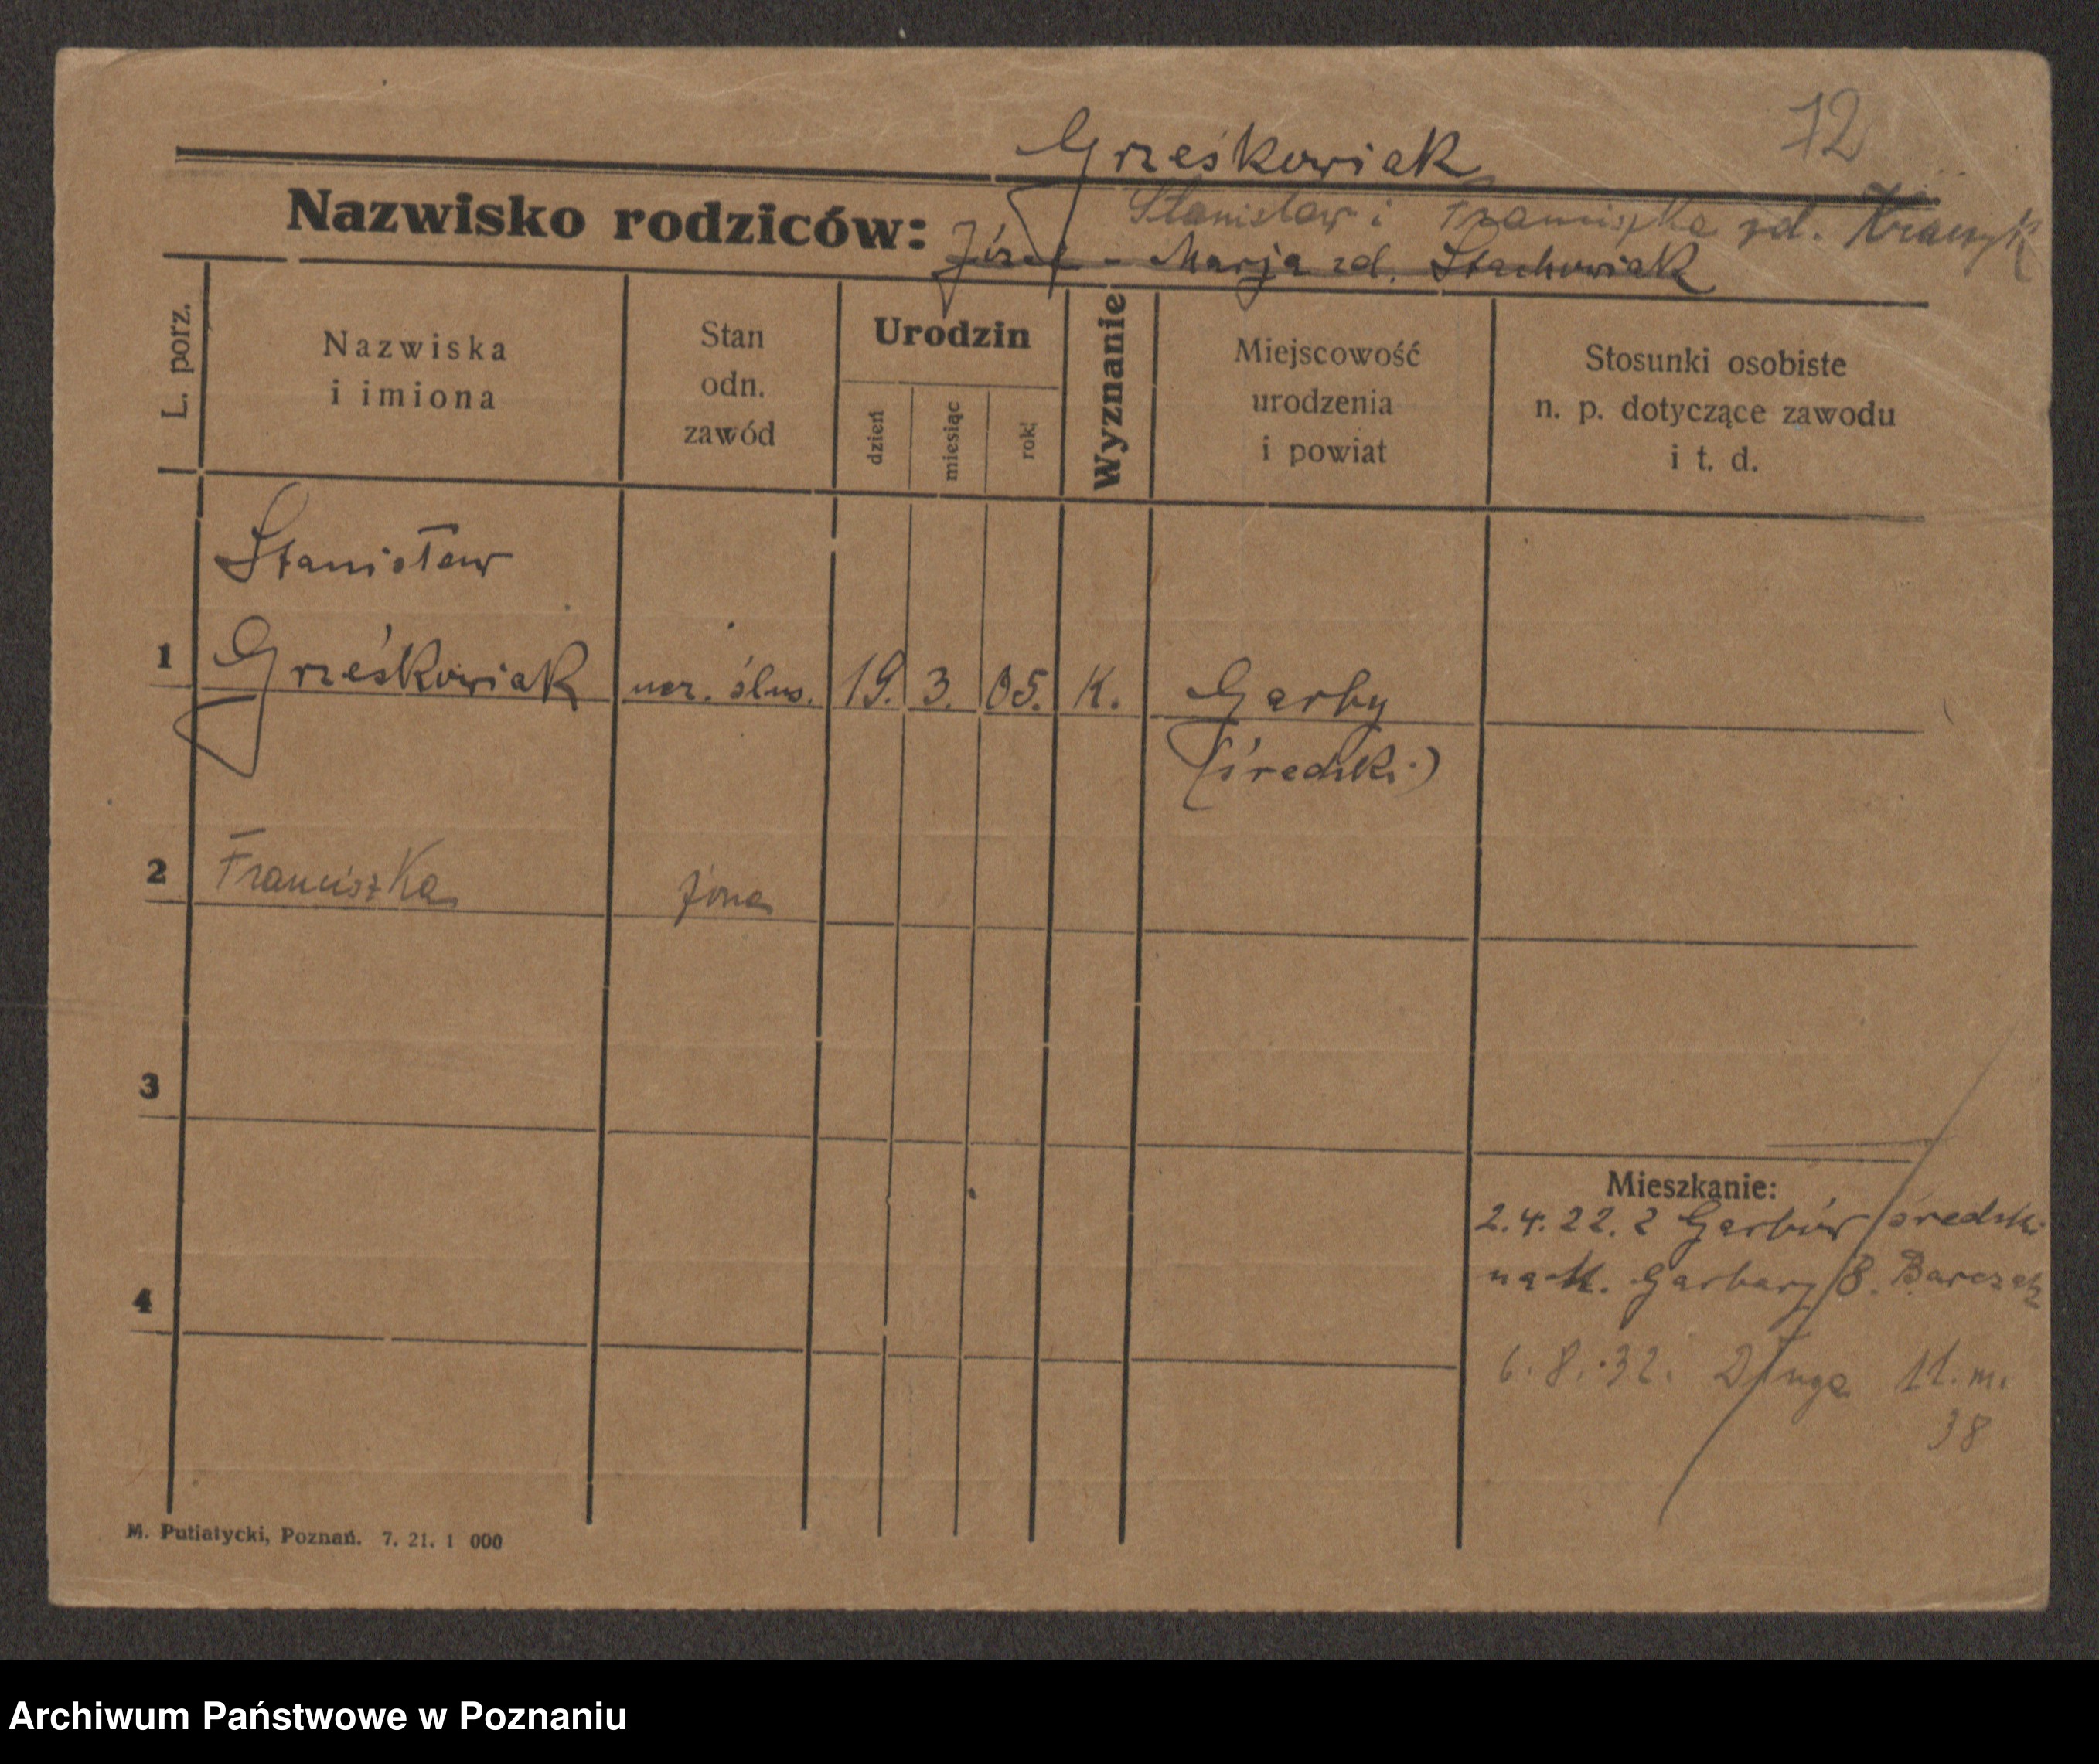 72
Greśkowiak
Nazwisko rodziców:
Stanisław i Franciszka zd.
Józef - Marja zd. Stachowiak
L. porz.
Nazwiska
i imiona
Stan
odn.
zawód
Urodzin
dzień
miesiąc
rok
Wyznanie
Miejscowość
urodzenia
i powiat
Stosunki osobiste
n. p. dotyczące zawodu
i t. d.
Stanisław
1 Grześkowiak ucz. ślus. 19. 3. 05. K. Garby
(średzki.)
2 Franciszka żona
3
Mieszkanie:
2.4.22. z Garbów średzki
na W. Garbary 8. Barczak
4
6.8.32. Długa 11. m.
38
M. Putiatycki, Poznań. 7. 21. 1 000
Archiwum Państwowe w Poznaniu